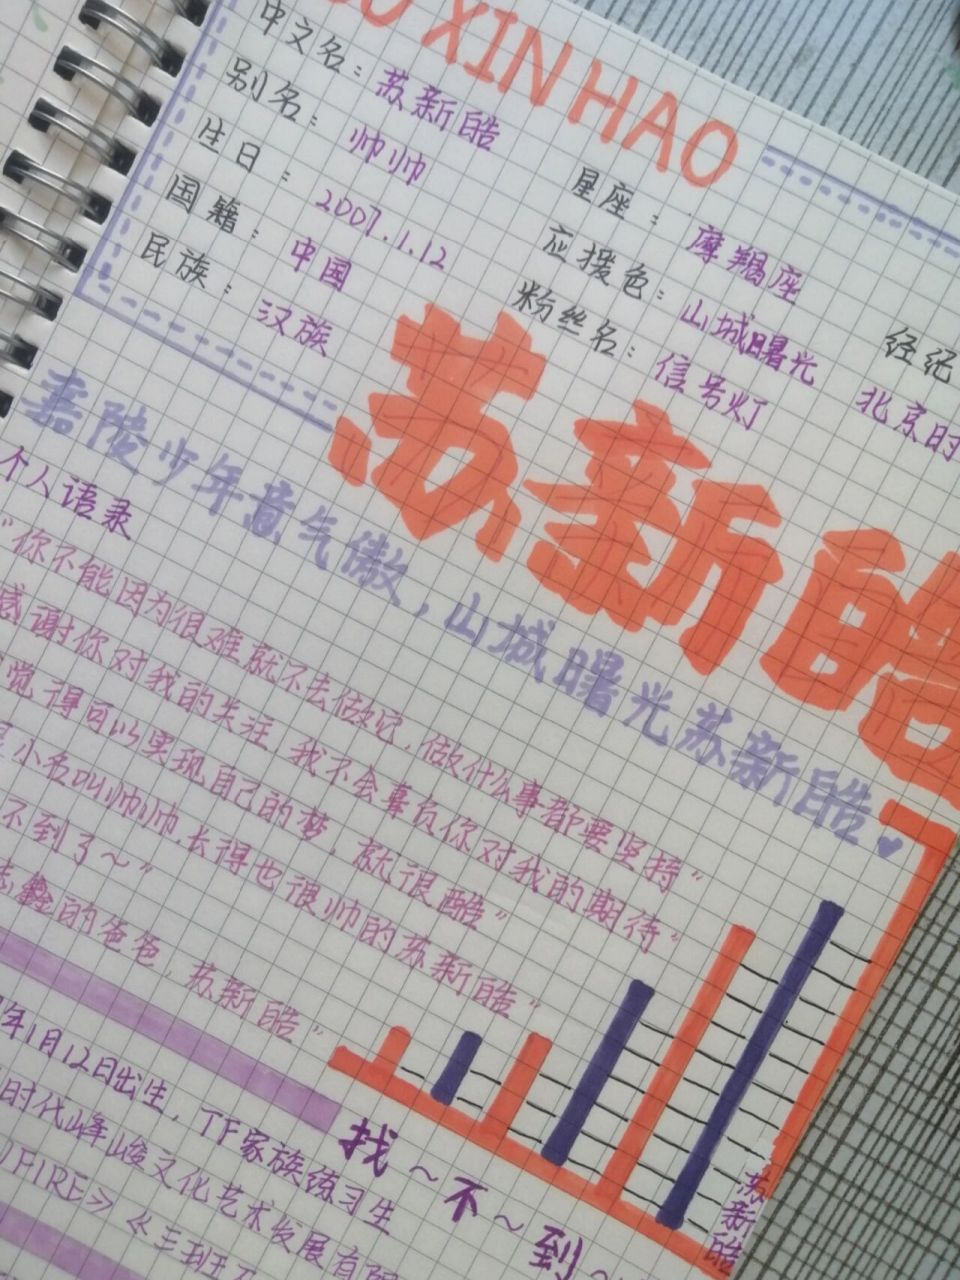 XIN HAO
中文名：苏新皓
别名：帅帅
生日：2007.1.12
国籍：中国
民族：汉族
星座：摩羯座
应援色：山城曙光
粉丝名：信号灯
经纪
北京时
苏新皓
嘉陵少年意气傲，山城曙光苏新皓
个人语录
"你不能因为很难就不去做它，做什么事都要坚持"
感谢你对我的关注，我不会辜负你对我的期待"
觉得可以实现自己的梦，就很酷"
小名叫帅帅，长得也很帅的苏新皓"
不到了～"
志鑫的爸爸，苏新皓"
年1月12日出生，TF家族练习生
时代峰峻文化艺术发展有限
FIRE》《三班
找～不～到～
苏新皓